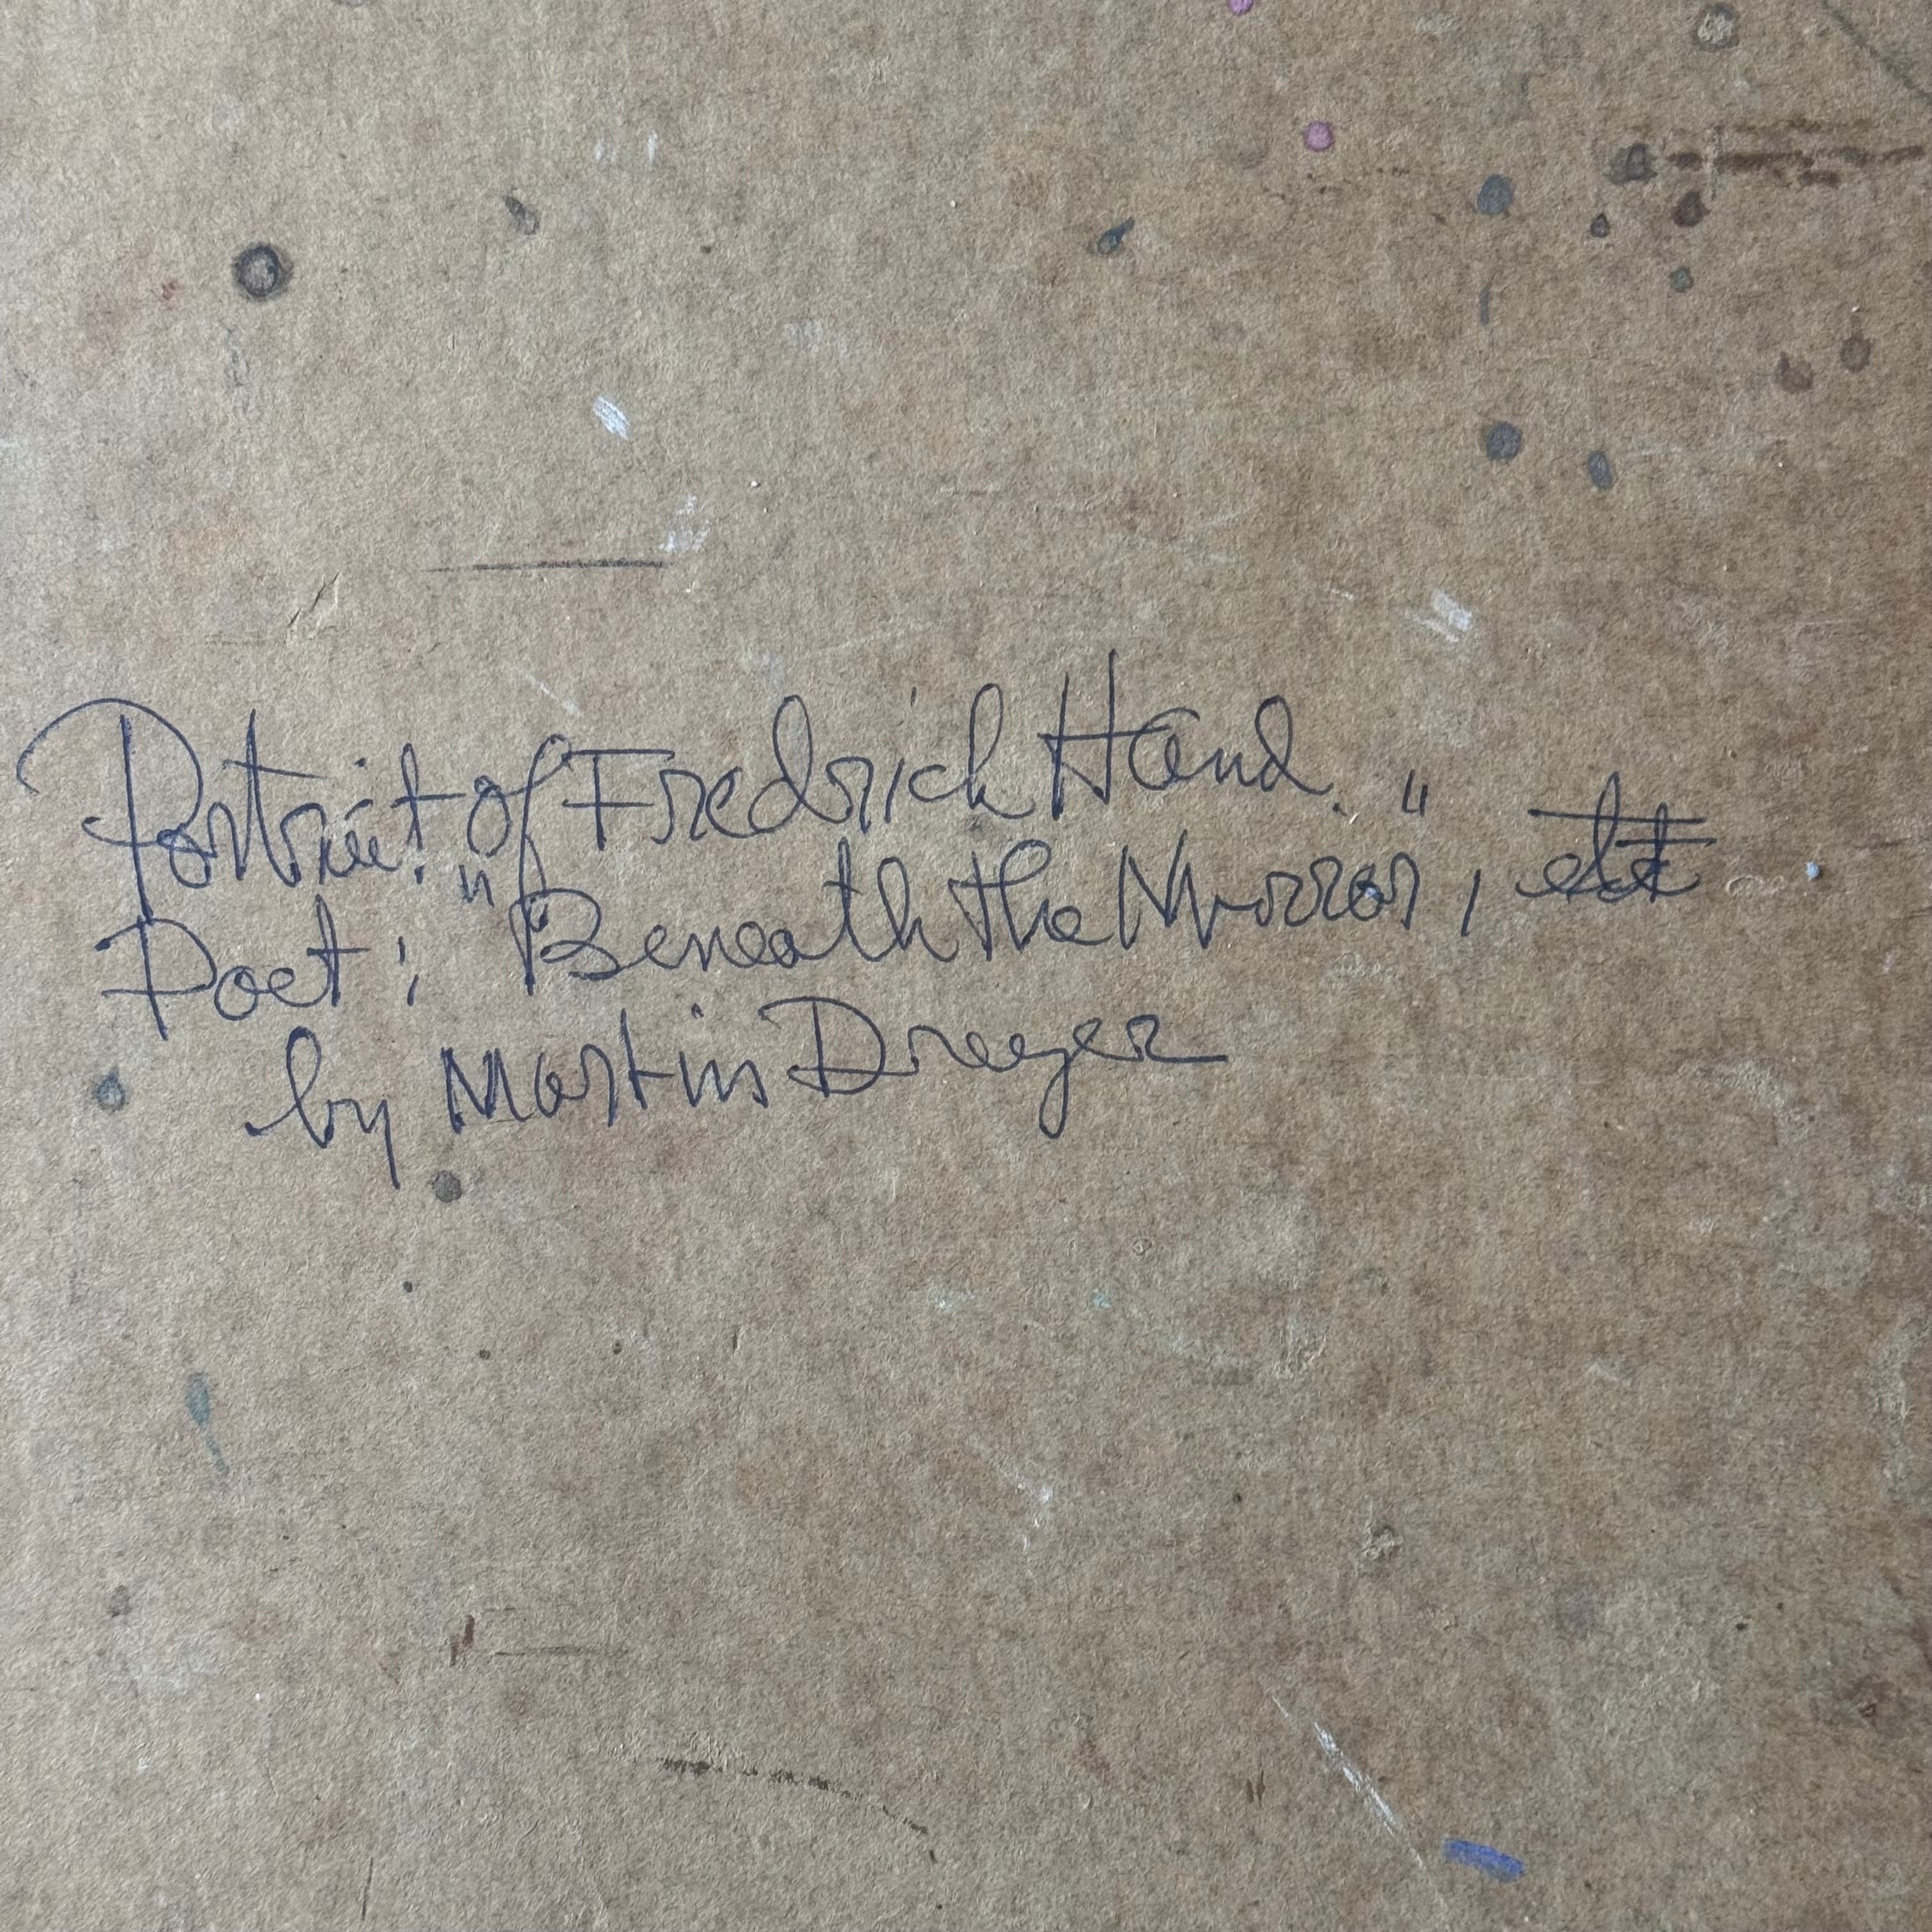 Portrait of Fredrick Hand.
Poet: "Beneath the Mirror",
by Martin Dreyer